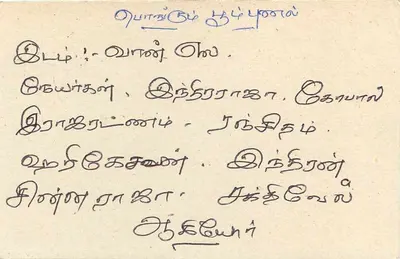 பொங்கும் பூம்புனல்
இடம்:- வான் எல.
நேயர்கள். இந்திரராஜா. கோபால்
இராஜரட்ணம் - ரஞ்சிதம்.
ஹரிகேசவன். இந்திரன்
சின்னராஜா. சக்திவேல்
ஆகியோர்